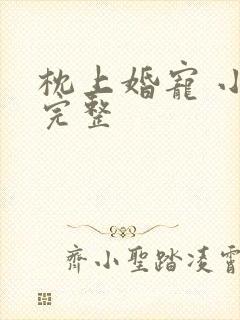 枕上婚寵 小
完整
齊小聖踏凌霄